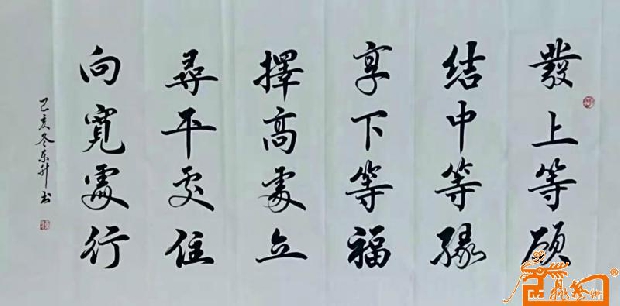 發上等願
結中等緣
享下等福
擇高處立
尋平處住
向寬處行
己亥冬东升书